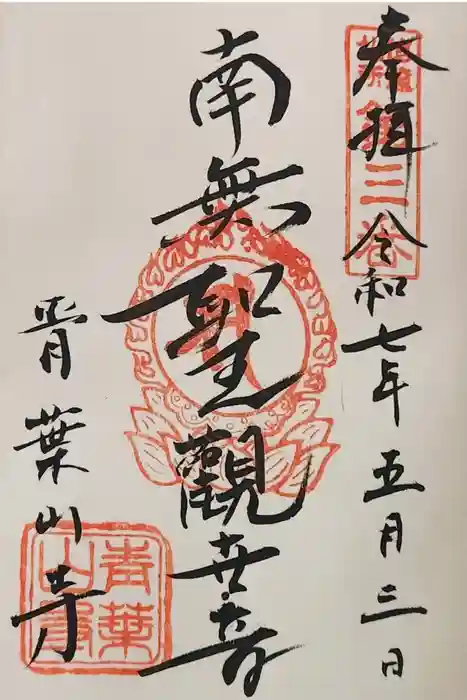 奉拝 令和七年五月三日
南無聖觀世音
青葉山寺
青葉
山寺